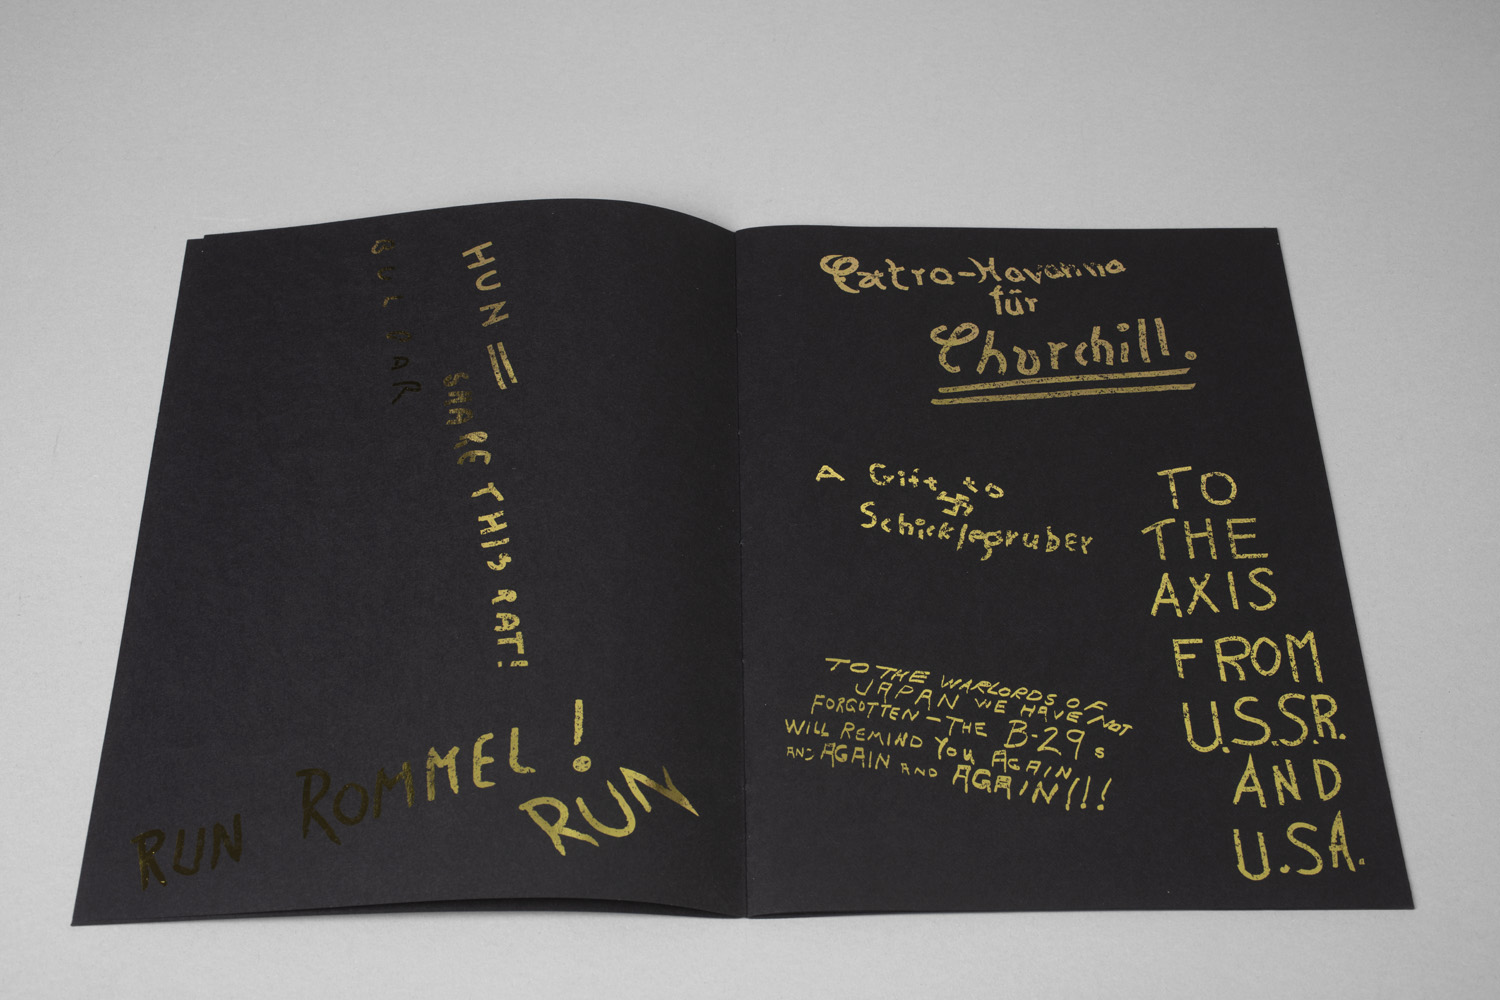 HUN =
SHARE THIS RAT!
RUN ROMMEL !
RUN
Extra-Havanna
für
Churchill.
A Gift to
卐
Schicklegruber
TO
THE
AXIS
FROM
U.S.S.R.
AND
U.S.A.
TO THE WARLORDS OF
JAPAN WE HAVE NOT
FORGOTTEN — THE B-29s
WILL REMIND YOU AGAIN
AND AGAIN AND AGAIN!!!